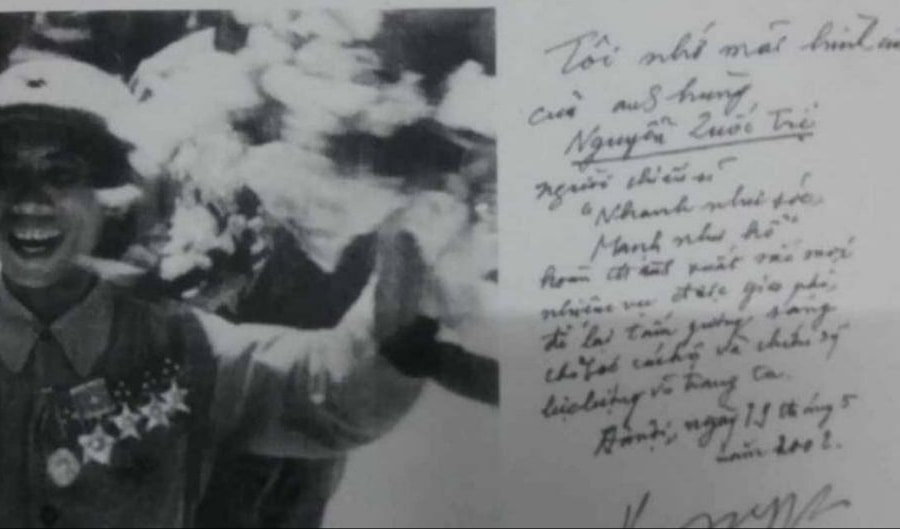 Tôi nhớ mãi hình
của anh hùng
Nguyễn Quốc Trị
người chiến sĩ
"Nhanh như sóc,
Mạnh như hổ"
hoàn thành xuất sắc mọi
nhiệm vụ được giao phó,
để lại tấm gương sáng
cho cán bộ và chiến sỹ
lực lượng vũ trang ta.
ngày 19 tháng 5
năm 2002.